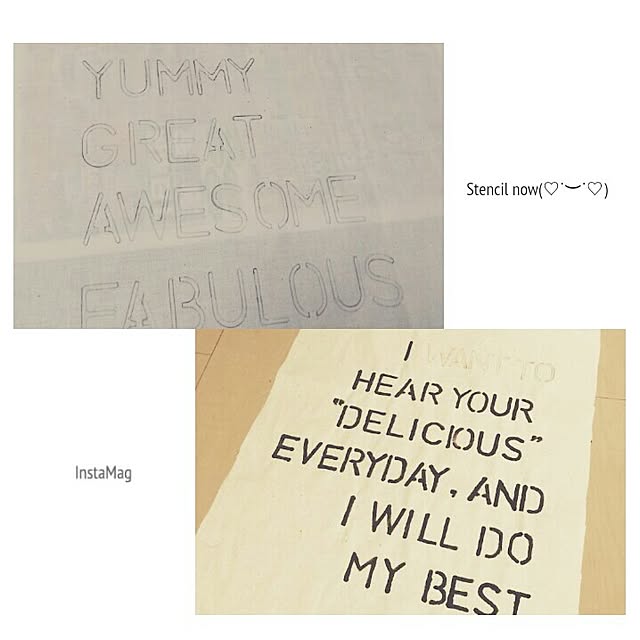 YUMMY
GREAT
AWESOME
FABULOUS
Stencil now(♡˙︶˙♡)
I WANT TO
HEAR YOUR
"DELICIOUS"
EVERYDAY, AND
I WILL DO
MY BEST
InstaMag